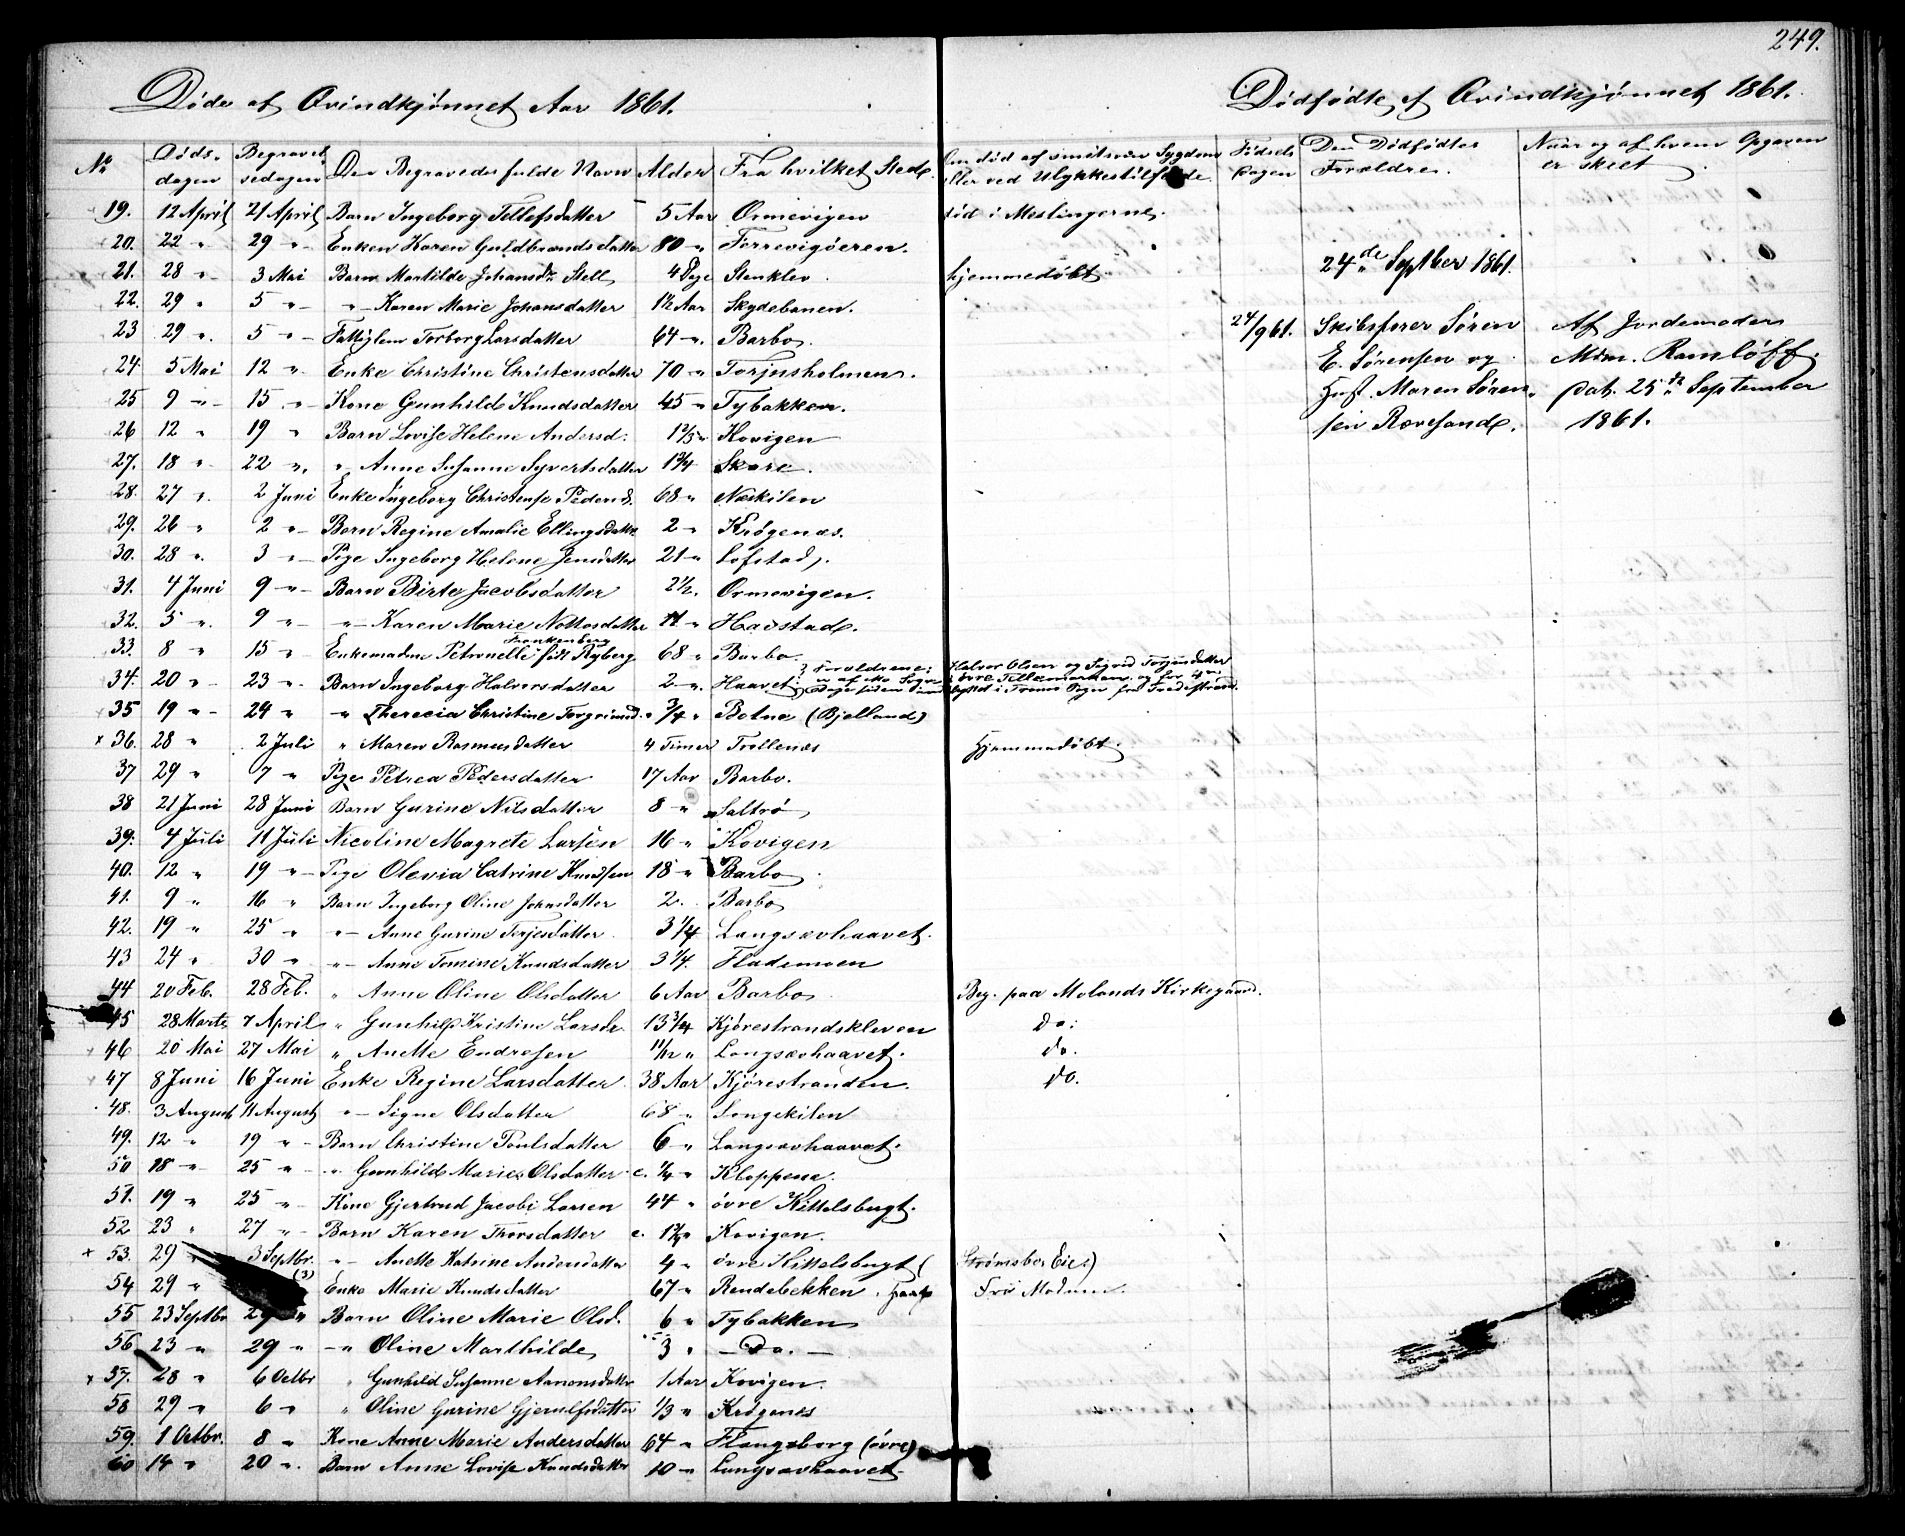 249.
Døde af Qvindkjønnet Aar 1861.
Dødfødte af Qvindkjønnet 1861.
No Døds-dagen Begravel-sedagen Den Begravedes fulde Navn Alder Fra hvilket Sted. Om død af smitsom Sygdom eller ved Ulykkestilfælde. Fødsels Dagen Den Dødfødtes Forældre. Naar og af hvem Opgaven er skeet
19. 12 April 21 April Barn Ingeborg Tellefsdatter 5 Aar Ormevigen død i Meslingerne.
20. 22 " 29 " Enken Karen Guldbrandsdatter 80 " Torrevigøeren.
21. 28 " 3 Mai Barn Mathilde Johansdr. Stell 4 Dage Stenklev hjemmedøbt
22. 29 " 5 " " Karen Marie Johansdatter 1½ Aar Skydebanen.
23 29 " 5 " Fattiglem Torborg Larsdatter 64 " Barbo.
24. 5 Mai 12 " Enke Christine Christensdatter 70 " Torjusholmen.
25 9 " 15 " Kone Gunhild Knudsdatter 45 " Tybakken.
26 12 " 19 " Barn Lovise Helene Andersd: Kovigen
27. 18 " 22 " " Anne Susanne Syvertsdatter 1¾ Skare.
28. 27 " 2 Juni Enke Ingeborg Christense Pedersd. 68 " Næskilen
29. 26 " 2 " Barn Regine Amalie Ellingsdatter 2 " Krøgenæs.
30. 28 " 3 " Pige Ingeborg Helene Jensdatter 21 " Lofstad.
31. 4 Juni 9 " Barn Birte Jacobsdatter 2½ Ormevigen.
32. 5 " 9 " " Karen Marie Nottosdatter 11 " Havstad.
33. 8 " 15 " Enkemadme Petronelle Frankenberg født Ryberg 68 " Barbo.
34. 20 " 23 " Barn Ingeborg Halvorsdatter 2 " Haavet Forældrene: Halvor Olsen og Sigrid Torjusdatter
35 19 " 24 " " Therecia Christine Torgrimsd. ¾ " Botne (Bjelland)
36. 28 " 2 Juli " Maren Rasmusdatter 4 Timer Trollenæs Hjemmedøbt.
37 29 " 7 " Pige Petrea Pedersdatter 17 Aar Barbo.
38 21 Juni 28 Juni Barn Gurine Nilsdatter 8 " Saltrø
39. 4 Juli 11 Juli Nicoline Magrete Larsen 16 " Kovigen
40. 12 " 19 " Pige Olevia Catrine Knudsen 18 " Barbo
41. 9 " 16 " Barn Ingeborg Oline Johnsdatter 2 " Barbo
42. 19 " 25 " " Anne Gurine Terjesdatter 3¼ Langsævhaavet.
43 24 " 30 " " Anne Tomine Knudsdatter 3¼ Flademoen
44 20 Feb. 28 Feb. " Anne Oline Olsdatter 6 Aar Barbo Beg. paa Molands Kirkegaard.
45 28 Marts 7 April " Gunhild Kristine Larsdr. 13¾ Kjørestrandskleven do:
46 20 Mai 27 Mai " Anette Endresen 11/12 " Langsævhaavet. do.
47 8 Juni 16 Juni Enke Regine Larsdatter 38 Aar Kjørestranden. do.
48. 3 August 11 August " Signe Olsdatter 68 " Songekilen
49. 12 " 19 " Barn Christine Poulsdatter 6 " Langsævhaavet.
50 18 " 25 " " Gunhild Marie Olsdatter c. ¼ " Kloppene.
51. 19 " 25 " Kone Gjertrud Jacobi Larsen 44 " øvre Kittelsbugt.
52 23 " 27 " Barn Karen Thorsdatter c. Kovigen.
53. 29 " 3 Septbr. " Anette Katrine Andersdatter 4 " øvre Kittelsbugt (Strømsbo Eie.)
54 29 " (3) Enke Marie Knudsdatter 67 " Rendebekken
55 23 Septbr 29 " Barn Oline Marie Olsd. 6 " Tybakken
56 23 " 29 " " Oline Marthilde 3 " Do.
57. 28 " 6 Octbr " Gunhild Susanne Aanonsdatter 1 Aar Kovigen.
58 29 " 6 " " Oline Gurine Gjerulfsdatter 1/3 " Krøgenes
59. 1 Octbr. 8 " Kone Anne Marie Andersdatter 64 " Flangeborg (øvre)
60 14 " 20 " Barn Anne Lovise Knudsdatter 10 " Langsævhaavet
24de Septber 1861.
24/9 61. Skibsfører Søren Af Jordemoder
E. Sørensen og Mdm. Ramløff.
Hust. Maren Søren- Dat. 25de September
sen Rævesand. 1861.